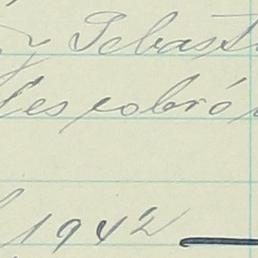 y Sebast
les cobró
1942